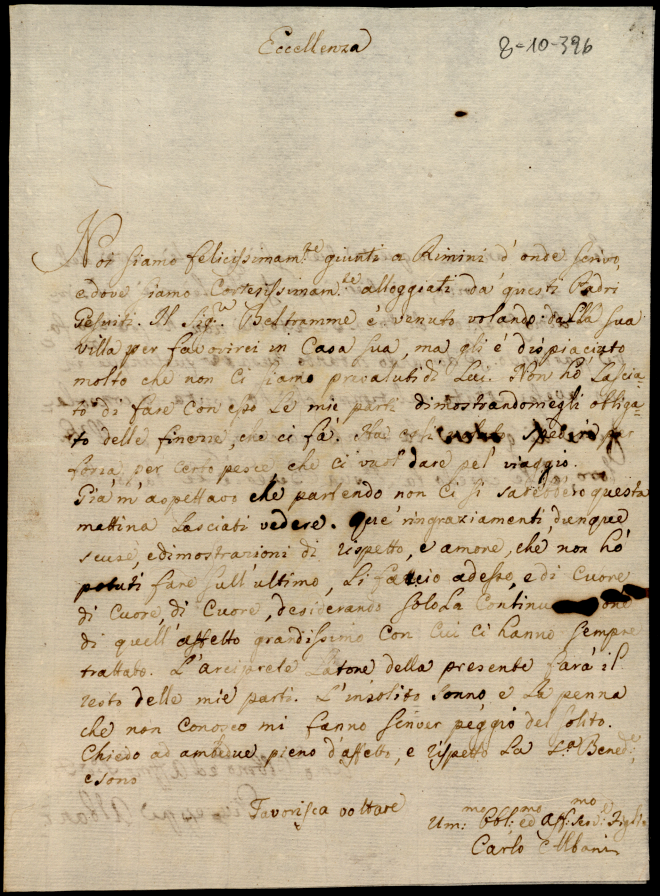 Eccellenza
8-10-396
Noi siamo felicissimam.te giunti a Rimini d'onde scrivo,
e dove siamo Cortesissimam.te alloggiati da questi Padri
Gesuiti. Il Sig.re Beltramme è venuto volando dalla sua
villa per favorirci in Casa sua, ma gli è dispiaciuto
molto che non ci siamo prevaluti di Lui. Non hò Lascia-
to di fare con esso Le mie parti dimostrandomegli obliga-
to delle finezze, che ci fà. Ha egli voluto spedire per
forza, per certo pesce, che ci vuol dare pel viaggio.
Già m'aspettavo che partendo non Ci si sarebbero questa
mattina Lasciati vedere. Que' ringraziamenti, dunque,
scuse, e dimostrazioni di rispetto, e amore, che non hò
potuti fare sull'ultimo, Li faccio adesso, e di Cuore
di Cuore, di Cuore, desiderando solo La Continuazione
di quell'affetto grandissimo con cui ci hanno sempre
trattato. L'arciprete Latore della presente farà il
resto delle mie parti. L'insolito sonno e La penna
che non conosco mi fanno scriver peggio del solito.
Chiedo ad ambedue pieno d'affetto, e rispetto La S.a Bened.e
e sono
Favorisca voltare
Um:mo Obl:mo ed Aff:mo Figlio
Carlo Albani